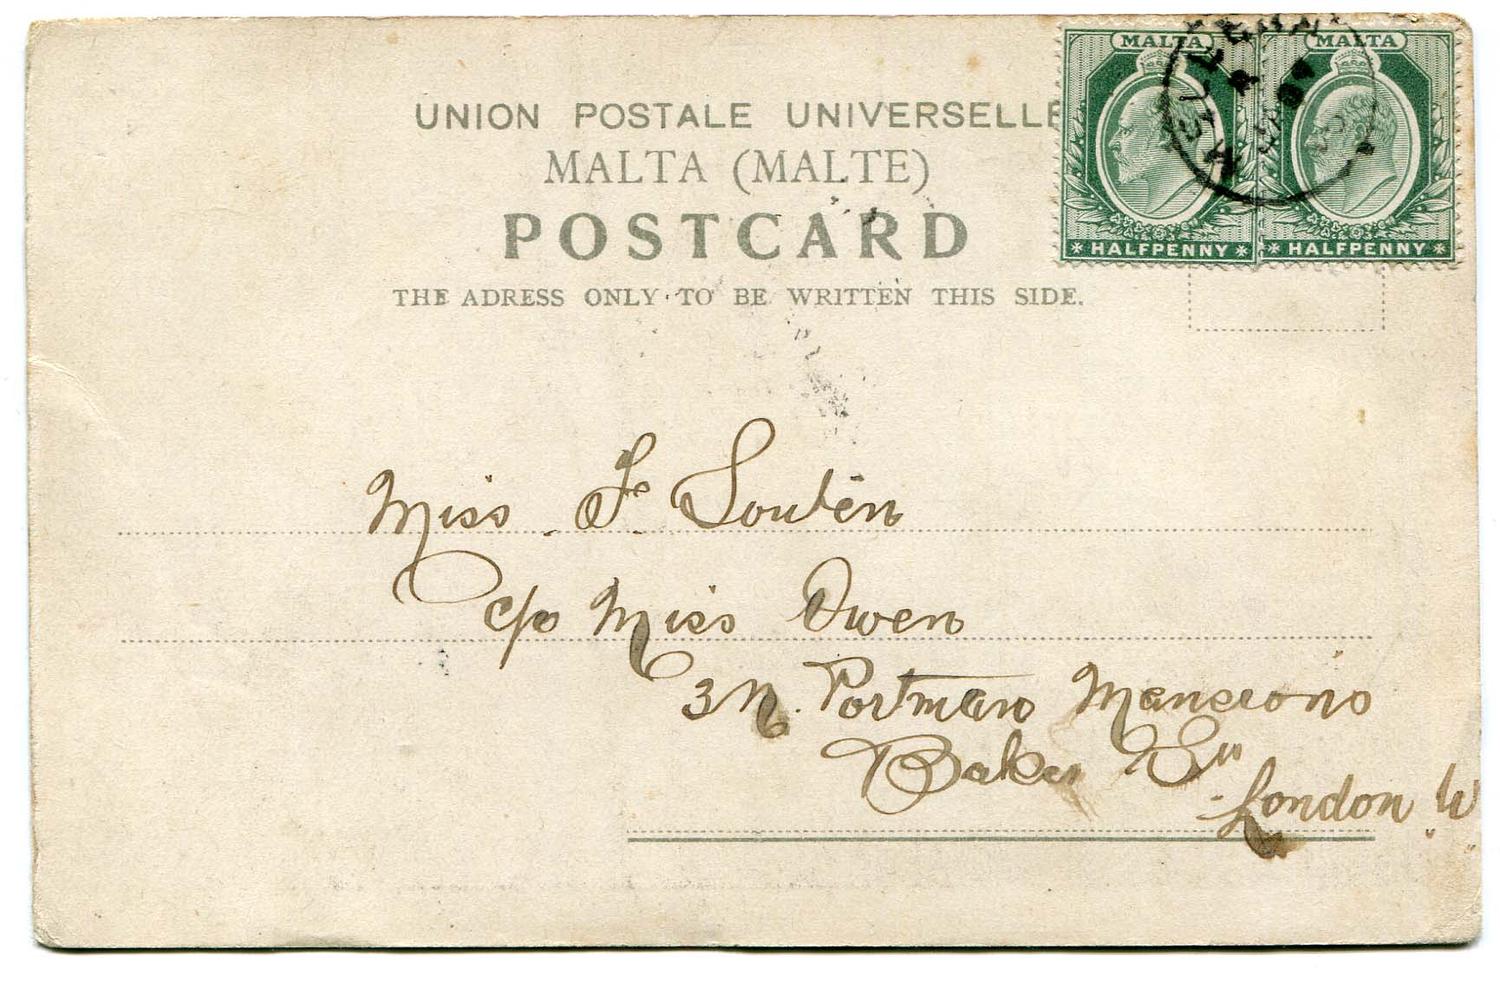 UNION POSTALE UNIVERSELLE
MALTA (MALTE)
POSTCARD
THE ADRESS ONLY TO BE WRITTEN THIS SIDE.
MALTA
HALFPENNY
MALTA
HALFPENNY
MELLEHA
Miss F Souten
c/o Miss Owen
3 N. Portman Mansions
Baker St
London W